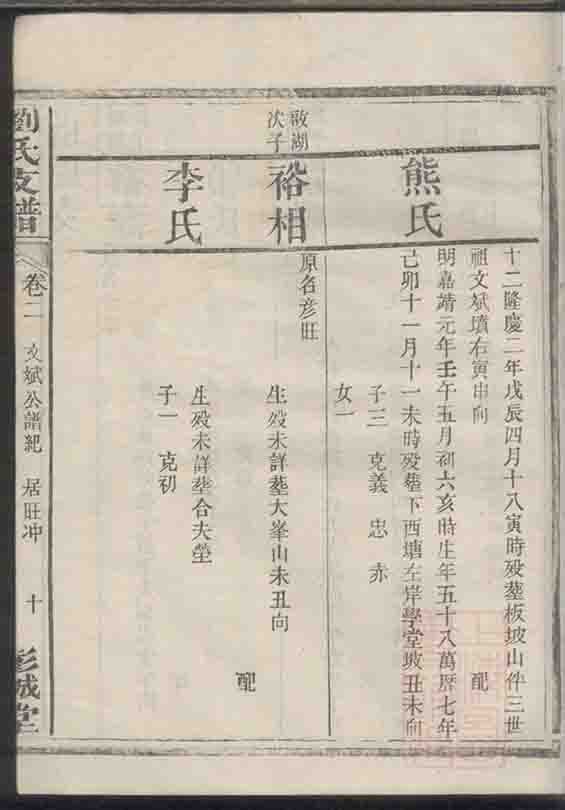 十二隆慶二年戊辰四月十八寅時殁塟板坡山件三世
祖文斌墳右寅申向 配
熊氏
明嘉靖元年壬午五月初六亥時生年五十八萬厯七年
己卯十一月十一未時殁塟下西塘左岸學堂坡丑未向
子三 克義 忠 赤
女一
敬湖
次子
裕相
原名彦旺
生殁未詳塟大峯山未丑向
配
李氏
生殁未詳塟合夫塋
子一 克初
劉氏支譜 卷二 文斌公譜紀 居旺冲 十 彭城堂